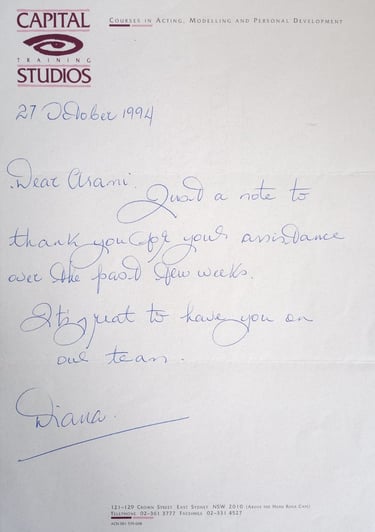 CAPITAL
TRAINING
STUDIOS
COURSES IN ACTING, MODELLING AND PERSONAL DEVELOPMENT
27 October 1994
Dear Asani.
Just a note to
thank you for your assistance
over the past few weeks.
It's great to have you on
our team.
Diana.
121-129 CROWN STREET EAST SYDNEY NSW 2010 (ABOVE THE HARD ROCK CAFE)
TELEPHONE 02-361 3777 FACSIMILE 02-331 4527